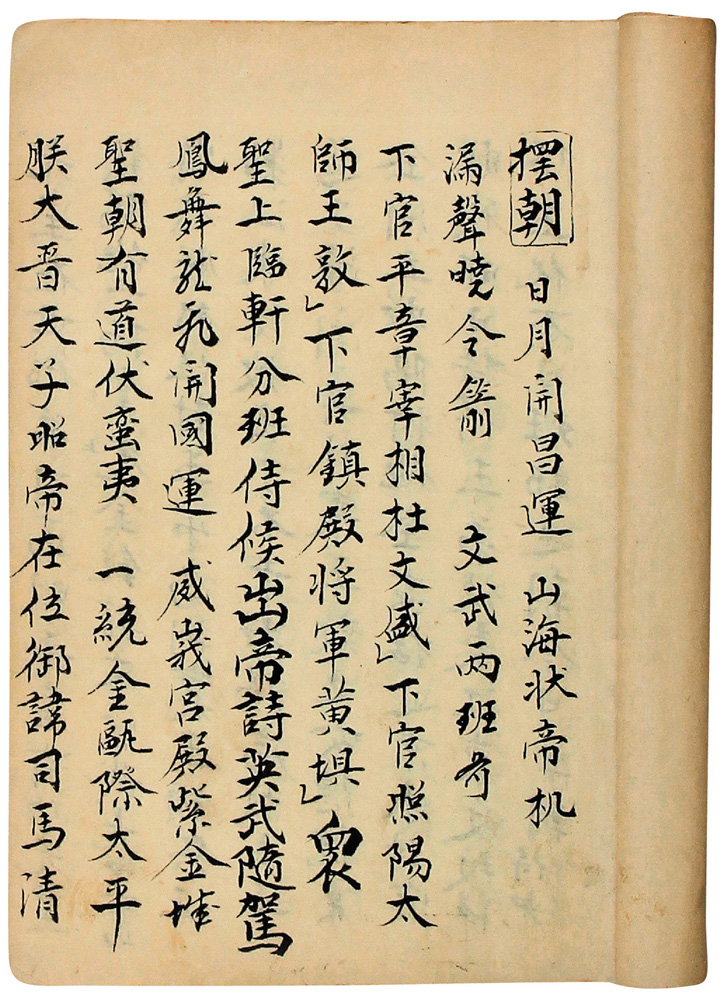 摆朝 日月開昌運 山海状帝机
漏聲曉令箭 文武两班齐
下官平章宰相杜文盛」下官照陽太
師王敦」下官鎮殿将軍黄埧」衆
聖上臨軒分班侍候出帝詩英武隨駕
鳳舞龙飛開國運 威峩宮殿紫金城
聖朝有道伏蛮夷 一統金甌際太平
朕大晋天子昭帝在位御諱司馬清